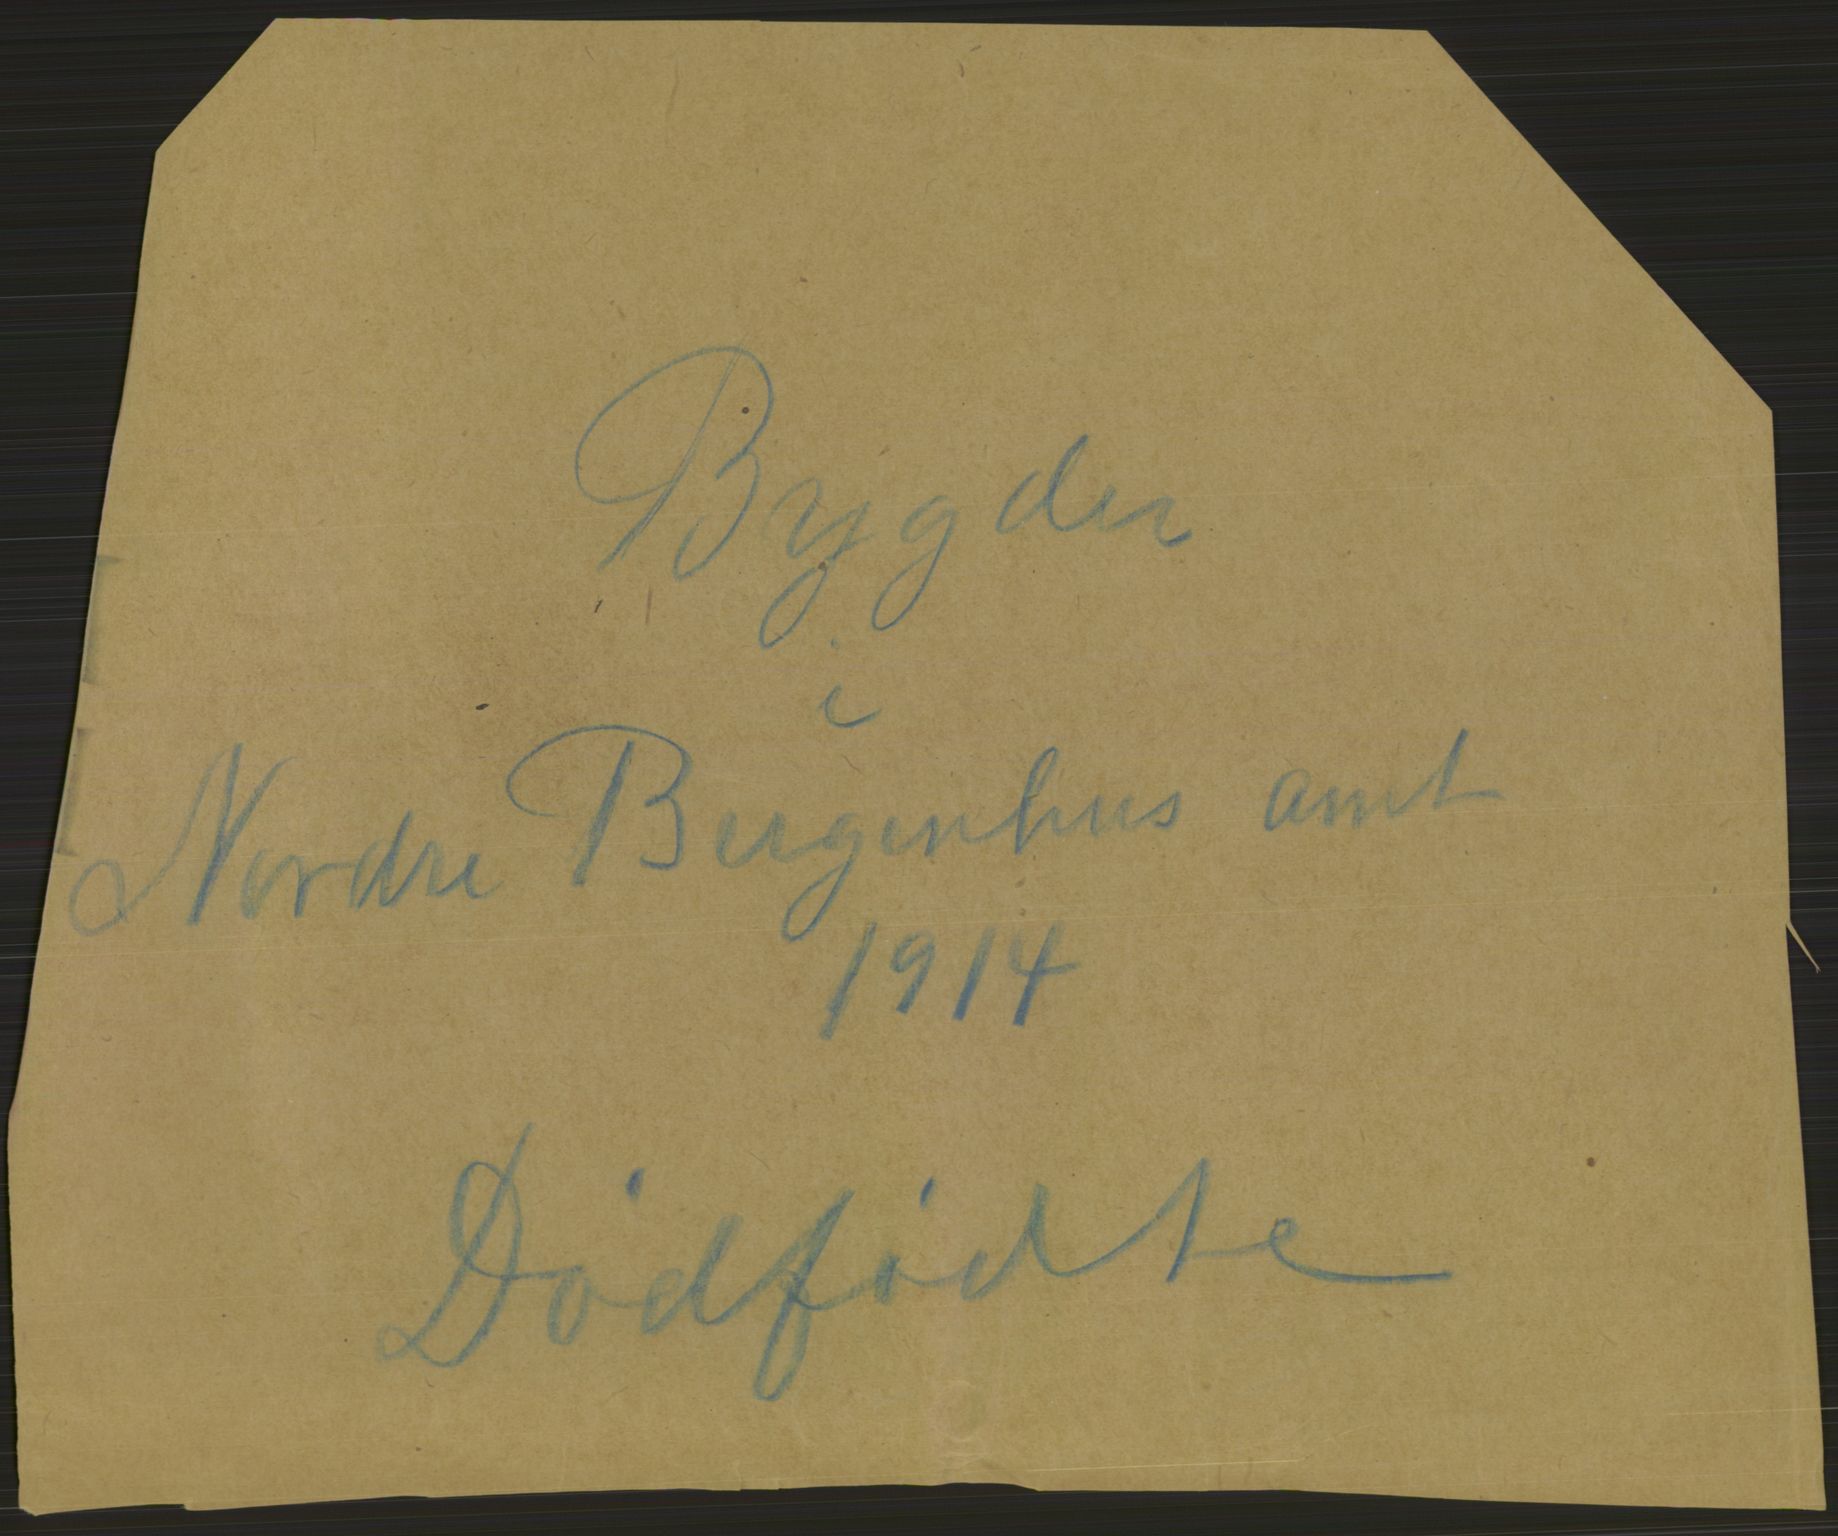 Bygder
i
Nordre Bergenhus amt
1914
Dødfødte